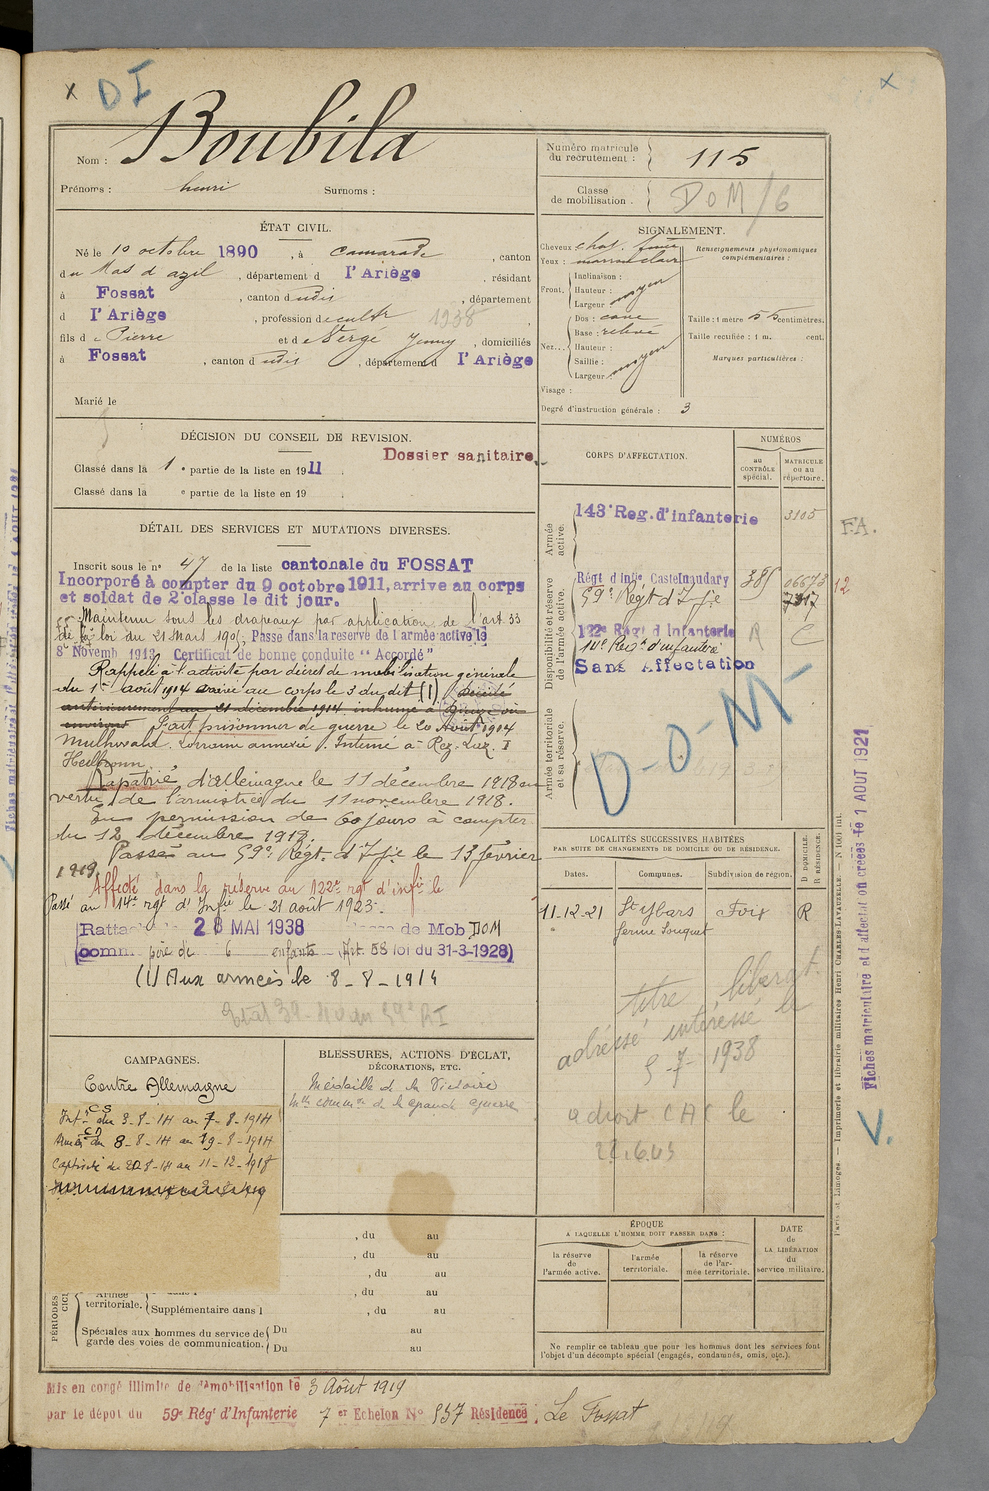 × D I ×
Boubila
Nom :
Prénoms : henri Surnoms :
Numéro matricule du recrutement : 115
Classe de mobilisation . DOM / 6
ÉTAT CIVIL.
Né le 10 octobre 1890 , à Camarade , canton
du Mas d'azil , département d l'Ariège , résidant
à Fossat , canton dudis , département
d l'Ariège , profession de cultr 1938
fils de Pierre et de Jenny , domiciliés
à Fossat , canton d udis , département d l'Ariège
Marié le
SIGNALEMENT.
Cheveux chat. foncé
Yeux : marron clair
Renseignements physionomiques complémentaires :
Front. Inclinaison :
Hauteur :
Largeur moyen
Nez... Dos : cave
Base : relevé
Hauteur :
Saillie :
Largeur : moyen
Visage :
Taille : 1 mètre 55 centimètres.
Taille rectifiée : 1 m. cent.
Marques particulières :
Degré d'instruction générale : 3
DÉCISION DU CONSEIL DE REVISION.
Dossier sanitaire.
Classé dans la 1 e partie de la liste en 1911 .
Classé dans la e partie de la liste en 19 .
DÉTAIL DES SERVICES ET MUTATIONS DIVERSES.
Inscrit sous le no 47 de la liste cantonale du FOSSAT
Incorporé à compter du 9 octobre 1911, arrive au corps
et soldat de 2e classe le dit jour.
Maintenu sous les drapeaux par application de l'art. 33
de la loi du 21 Mars 1905 Passé dans la réserve de l'armée active le
8 Novemb 1913 Certificat de bonne conduite "Accordé"
Rappelé à l'activité par décret de mobilisation générale
du 1er août 1914 arrivé au corps le 3 du dit (1) Décédé
antérieurement au 21 décembre 1914 inhumé à
environs Fait prisonnier de guerre le 20 Août 1914
Lorraine annexée. Interné à
Heilbronn
Rapatrié d'allemagne le 11 décembre 1918 en
vertu de l'armistice du 11 novembre 1918.
En permission de 60 jours à compter
du 12 décembre 1918.
Passé au 59e Régt. d'Ifie le 13 février
1919
Affecté dans la réserve au 122e rgt d'infie le
Passé au 14e rgt d'Infie le 21 août 1923.
Ratta 28 MAI 1938 de Mob DOM
(comm père de 6 enfants (Art. 58 loi du 31-3-1928)
(1) Aux armées le 8-8-1914
CORPS D'AFFECTATION.
NUMÉROS
au CONTRÔLE spécial.
MATRICULE ou au répertoire.
Armée active.
143e Reg. d'infanterie 3105
Disponibilité et réserve de l'armée active.
Régt d'Infie Castelnaudary 385 06673 12
59e Régt d'Ifie 7317
122e Régt d'Infanterie R C
14e Regt d'infanterie
Sans Affectation
Armée territoriale et sa réserve.
D-O-M-
F.A.
LOCALITÉS SUCCESSIVES HABITÉES
PAR SUITE DE CHANGEMENTS DE DOMICILE OU DE RÉSIDENCE.
Dates. Communes. Subdivision de région. D DOMICILE. R RÉSIDENCE.
11-12-21 St Ybars Foix R
ferme Souquet
titre libérat.
adressé intéressé le
5-7-1938
a droit CAC le
CAMPAGNES.
Contre Allemagne
Intr CS du 3-8-14 au 7-8-1914
Armées du 8-8-14 au 19-8-1914
Captivité du 20 8-14 au 11-12-1918
BLESSURES, ACTIONS D'ÉCLAT, DÉCORATIONS, ETC.
Médaille d. la Victoire
Mlle comme d. la grande guerre
, du au
, du au
, du au
, du au
PÉRIODES
Armée territoriale.
Supplémentaire dans l , du au
Spéciales aux hommes du service de garde des voies de communication. Du au
Du au
ÉPOQUE
A LAQUELLE L'HOMME DOIT PASSER DANS :
la réserve de l'armée active.
l'armée territoriale.
la réserve de l'armée territoriale.
DATE de LA LIBÉRATION du service militaire.
Ne remplir ce tableau que pour les hommes dont les services font
l'objet d'un décompte spécial (engagés, condamnés, omis, etc.).
Mis en congé illimité de démobilisation le 3 Août 1919
par le dépot du 59e Régt d'Infanterie 7 er Echelon No 537 Résidence : Le Fossat
Paris et Limoges. — Imprimerie et librairie militaires Henri CHARLES-LAVAUZELLE.
Fiches matriculaire et d'affectat on créées le 1 AOUT 1921
V.